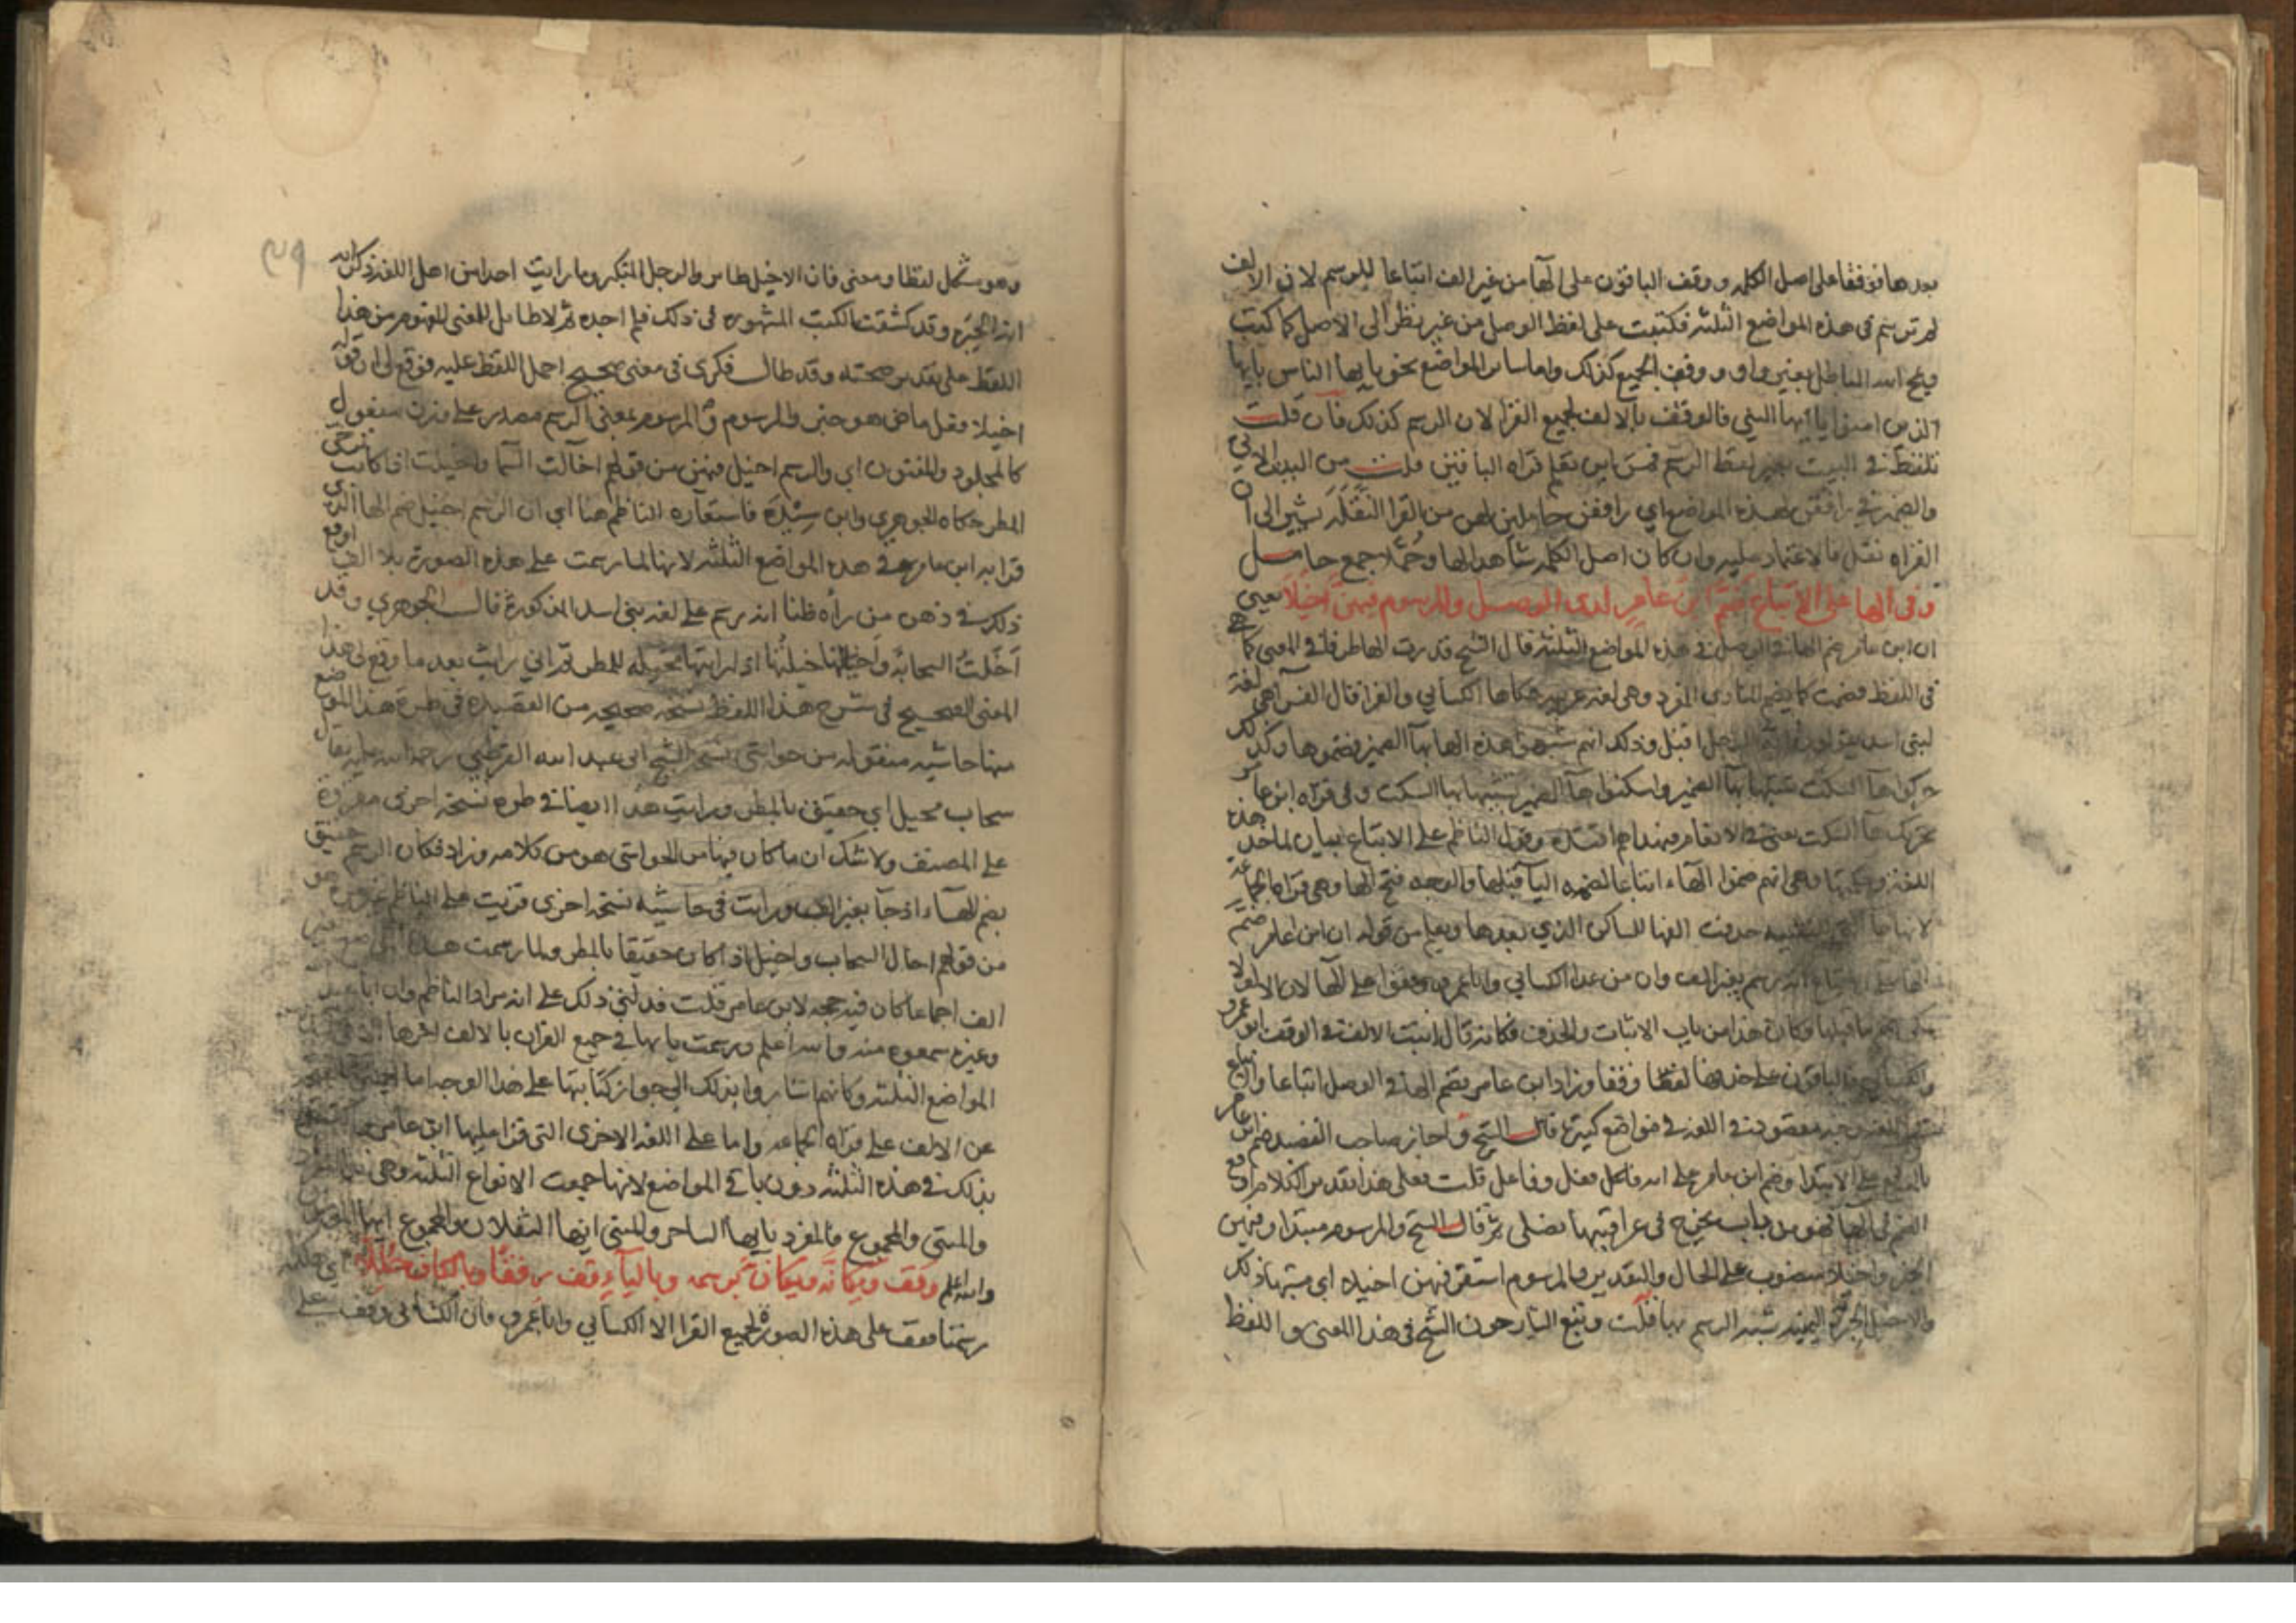 بعدها فوقفا على اصل الكلمه ووقف الباقون على الها من غير الف اتباعا للرسم لان الالف
لم ترسم في هذه المواضع الثلثه فكتبت على لفظ الوصل من غير نظر الى الاصل كما كتبت
ويمح الله الباطل بغير واو ووقف الجميع كذلك واما سائر المواضع نحو يا ايها الناس يا ايها
الذين امنوا يا ايها النبي فالوقف بالالف لجميع القرا لان الرسم كذلك فان قلت
تلفظ في البيت بغير لفظ الرسم فمن اين تعلم قراه الباقين قلت من البيت الاتي
والضمير في رافقن لهذه المواضع اي رافقن حاملين لهن من القرا النقله يشير الى ان
القراه نقل فالاعتماد عليه وان كان اصل الكلمه شاهدا لها وحملا جمع حامل
وفي الها على الاتباع ضم ابن عامر لدى الوصل والمرسوم فيهن اخيلا يعني
ان ابن عامر ضم الها في الوصل في هذه المواضع الثلثه قال الشيخ قدرت الها طرفا في المعنى كما هي
في اللفظ فضمت كما يضم المنادى المفرد وهي لغه عربيه حكاها الكسائي والفرا قال الفرا هي لغة
لبني اسد يقولون ايه الرجل اقبل وذلك انهم شبهوا هذه الها بها الضمير فضموها وكذلك
حركوا ها السكت تشبيها بها الضمير واسكنوا ها الضمير تشبيها بها السكت وفي قراه ابن عامر
تحريك ها السكت يعني في الانعام فبهداهم اقتده وقول الناظم على الاتباع بيان لماخذ هذه
اللغة وحكيتها وهي انهم ضموا الهاء اتباعا لضمه اليا قبلها والوجه فتح الها وهي قراه الجماعه
لانها ها التي للتنبيه حذفت الفها للساكن الذي بعدها ويعلم من قوله ان ابن عامر ضم
الها على الاتباع انه رسم بغير الف وان من عدا الكسائي وابا عمرو وقفوا على الها لان الالف لا
يكون ضم ما قبلها فكان هذا من باب الاثبات والحذف فكانه قال اثبت الالف في الوقف ابو عمرو
والكسائي والباقون على حذفها لفظا وقفا وزاد ابن عامر بضم الها في الوصل اتباعا واتباع
قال الشيخ واجاز صاحب القصيد ضم ابن عامر
بالرفع على الابتدا وضم ابن عامر على انه فاعل فعل وفاعل قلت فعلى هذا تقدير الكلام اوقع
الضم في الها فهو من باب يجرح في عراقيبها نصلي ثم قال الشيخ والمرسوم مبتدا وفيهن
الخبر واخيلا منصوب على الحال والتقدير والمرسوم استقر فيهن اخيلا اي مشبها ذلك
والاخيل الحبرة اليمنيه شبه الرسم بها قلت وتبع الشارحون الشيخ في هذا المعنى واللفظ
٤٩
وهو مشكل لفظا ومعنى فان الاخيل طاير والرجل المتكبر وما رايت احدا من اهل اللغه ذكر انه
انه الحبره وقد كشفت الكتب المشهوره في ذلك فلم اجده ثم لا طايل للمعنى المفهوم من هذا
اللفظ على تقدير صحته وقد طال فكري في معنى صحيح احمل اللفظ عليه فوقع لي ان قوله
اخيلا فعل ماض هو خبر والمرسوم والمرسوم بمعنى الرسم مصدر على وزن مفعول
كالمجلود والمفتون اي والرسم اخيل فيهن من قولهم اخالت السما واخيلت اذا كانت ترجى
المطر حكاه الجوهري وابن سيده فاستعاره الناظم هنا اي ان الرسم اخيل ضم الها الذي
قرا به ابن عامر في هذه المواضع الثلثه لانها لما رسمت على هذه الصورة بلا الف اوقع
ذلك في ذهن من راه ظنا انه رسم على لغه بني اسد المذكورة قال الجوهري وقد
اخلت السحابة واخيلتها اذا رايتها مخيله للمطر ثم اني رايت بعد ما وقع لي هذا
المعنى الصحيح في شرح هذا اللفظ نسخه صحيحه من القصيده في طرة هذا الموضع
منها حاشيه منقوله من حواشي نسخه الشيخ ابي عبد الله القرطبي رحمه الله عليه يقال
سحاب مخيل اي حقيق بالمطر ورايت هذا ايضا في طره نسخة اخرى مقروة
على المصنف ولا شك ان ما كان فيها من الحواشي هو من كلامه وزاد فكان الرسم حقيق
بضم الهاء اذ جا بغير الف ورايت في حاشيه نسخه اخرى قريت على الناظم
من قولهم اخال السحاب واخيل اذا كان حقيقا بالمطر ولما رسمت هذه
الف اجماعا كان فيه حجه لابن عامر قلت فدلني ذلك على انه مراد الناظم وان
وغيره سمعوه منه والله اعلم ورسمت يا يها في جميع القران بالالف اخرها الا في
المواضع الثلثه وكانهم اشاروا بذلك الى جواز كتابتها على هذا الوجه اما
عن الالف على قراه الجماعه واما على اللغه الاخرى التي قرا عليها ابن عامر
بذلك في هذه الثلثه دون باقي المواضع لانها جمعت الانواع الثلثه وهي
والمثنى والمجموع فالمفرد يا ايها الساحر والمثنى ايها الثقلان والمجموع ايها المومنون
والله اعلم وقف ويكانه ويكان برسمه وبالياء قف رفقا وبالكاف حللا
رسمتا فقف على هذه الصوره لجميع القرا الا الكسائي وابا عمرو فان الكسائي وقف على